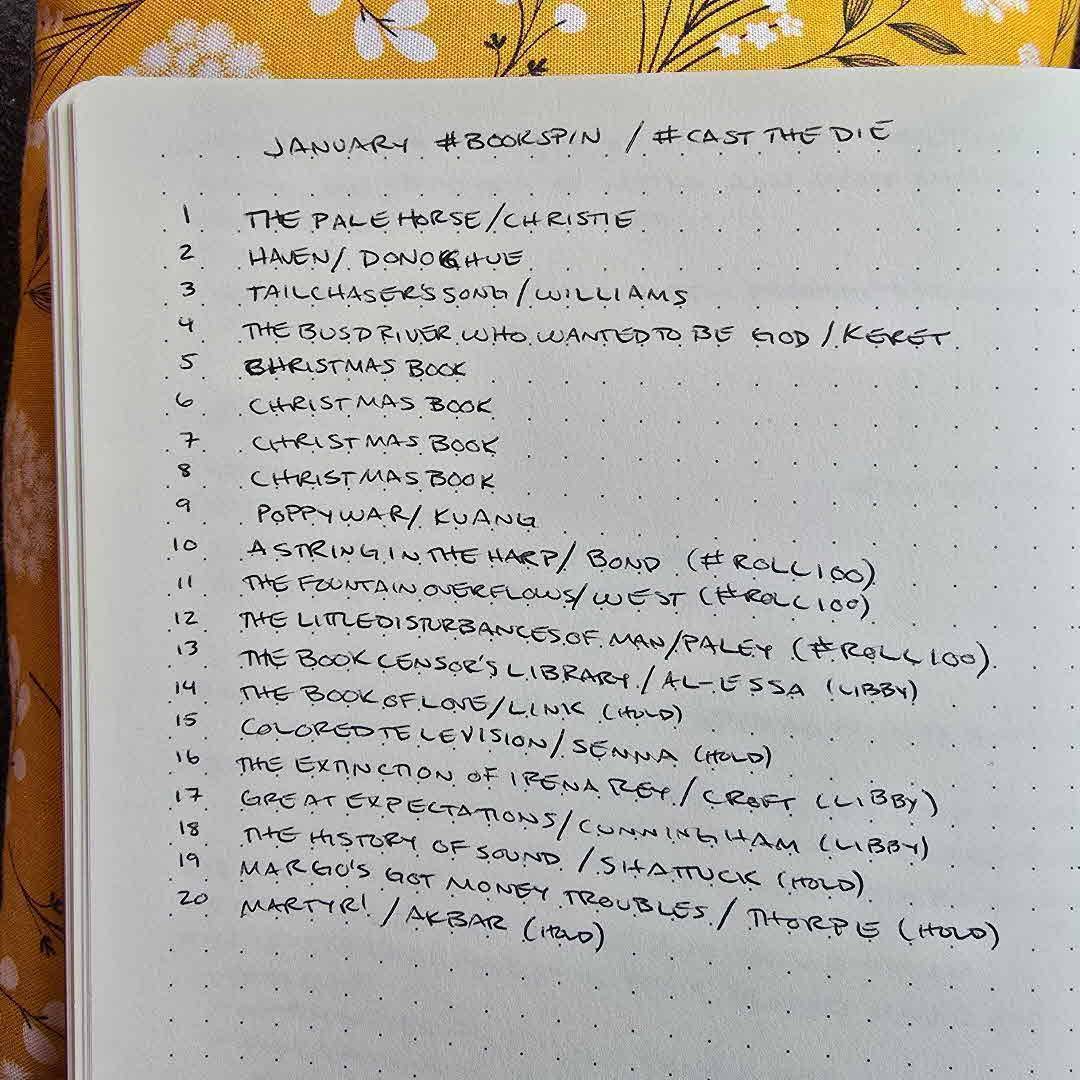 JANUARY #BOOKSPIN / #CAST THE DIE
1 THE PALE HORSE/CHRISTIE
2 HAVEN/ DONOGHUE
3 TAILCHASER'S SONG/WILLIAMS
4 THE BUS DRIVER WHO WANTED TO BE GOD / KERET
5 CHRISTMAS BOOK
6 CHRISTMAS BOOK
7 CHRISTMAS BOOK
8 CHRISTMAS BOOK
9 POPPY WAR/ KUANG
10 A STRING IN THE HARP/ BOND (#ROLL100)
11 THE FOUNTAIN OVERFLOWS/WEST (#ROLL100)
12 THE LITTLE DISTURBANCES OF MAN/PALEY (#ROLL100)
13 THE BOOK CENSOR'S LIBRARY/AL-ESSA (LIBBY)
14 THE BOOK OF LOVE/LINK (HOLD)
15 COLORED TELEVISION/SENNA (HOLD)
16 THE EXTINCTION OF IRENA REY/CROFT (LIBBY)
17 GREAT EXPECTATIONS/CUNNINGHAM (LIBBY)
18 THE HISTORY OF SOUND/SHATTUCK (HOLD)
19 MARGO'S GOT MONEY TROUBLES/THORPE (HOLD)
20 MARTYR! /AKBAR (HOLD)